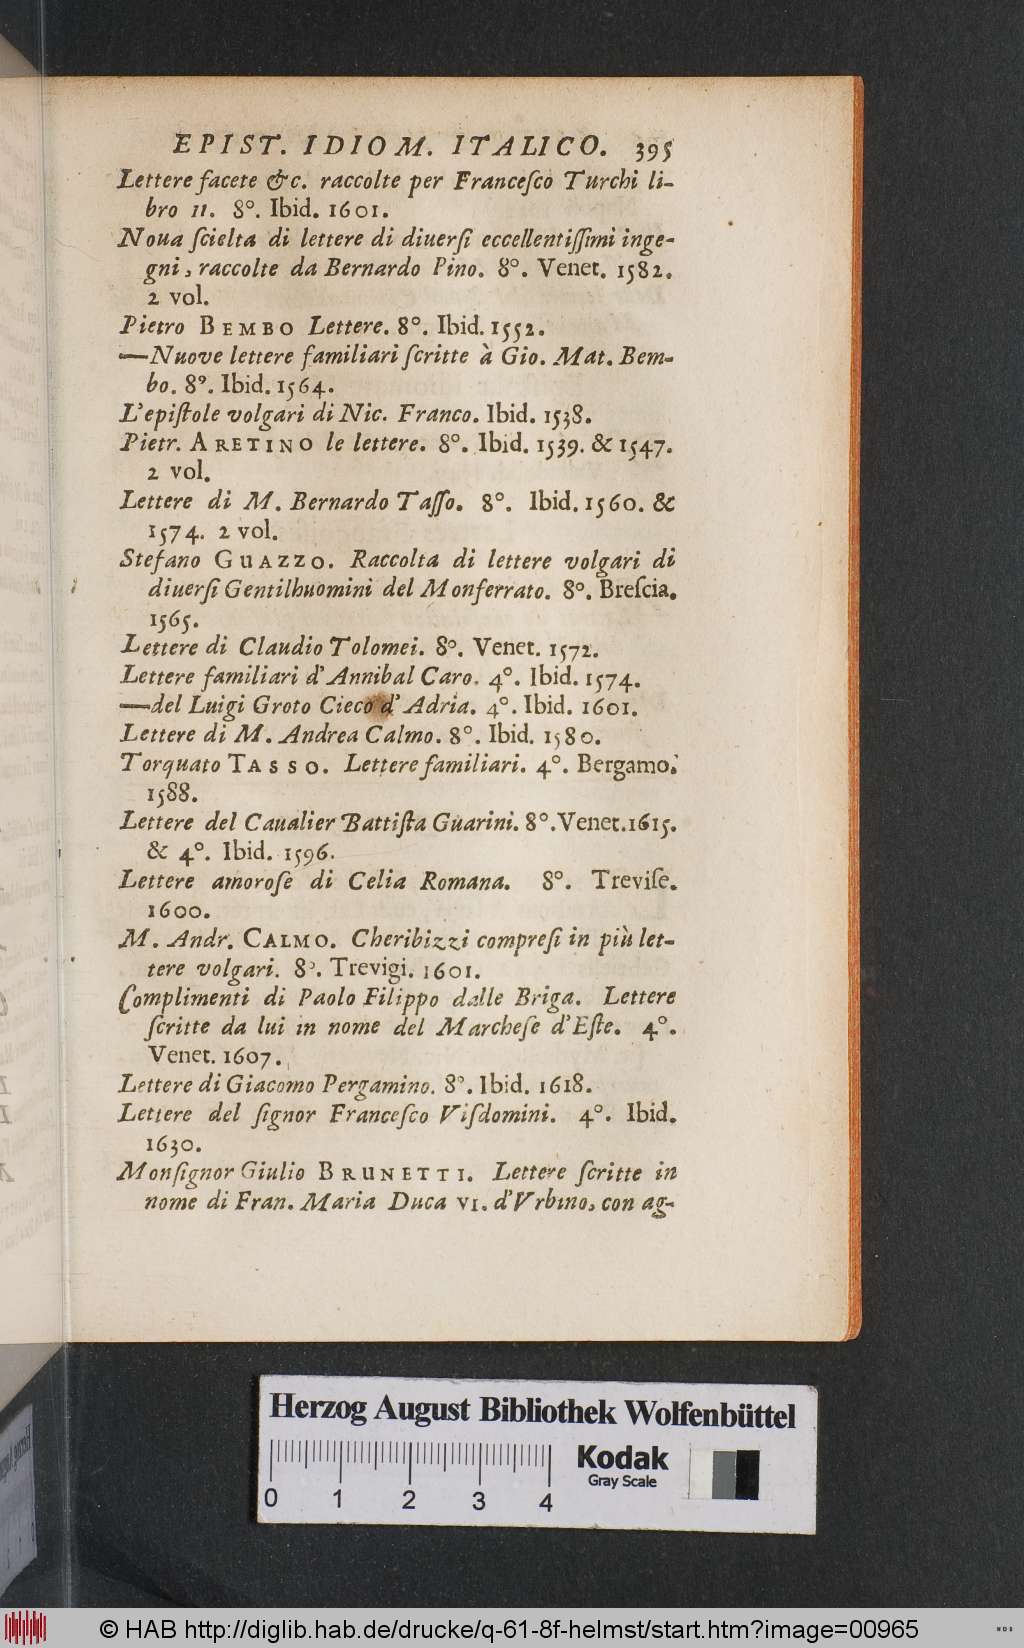 EPIST. IDIOM. ITALICO. 395
Lettere facete &c. raccolte per Franceſco Turchi li-
bro 11. 8°. Ibid. 1601.
Noua ſcielta di lettere di diuerſi eccellentiſſimi inge-
gni, raccolte da Bernardo Pino. 8°. Venet. 1582.
2 vol.
Pietro BEMBO Lettere. 8°. Ibid. 1552.
—Nuove lettere familiari ſcritte à Gio. Mat. Bem-
bo. 8°. Ibid. 1564.
L'epiſtole volgari di Nic. Franco. Ibid. 1538.
Pietr. ARETINO le lettere. 8°. Ibid. 1539. & 1547.
2 vol.
Lettere di M. Bernardo Taſſo. 8°. Ibid. 1560. &
1574. 2 vol.
Stefano GUAZZO. Raccolta di lettere volgari di
diuerſi Gentilhuomini del Monferrato. 8°. Breſcia.
1565.
Lettere di Claudio Tolomei. 8°. Venet. 1572.
Lettere familiari d'Annibal Caro. 4°. Ibid. 1574.
—del Luigi Groto Cieco d'Adria. 4°. Ibid. 1601.
Lettere di M. Andrea Calmo. 8°. Ibid. 1580.
Torquato TASSO. Lettere familiari. 4°. Bergamo.
1588.
Lettere del Caualier Battiſta Guarini. 8°. Venet. 1615.
& 4°. Ibid. 1596.
Lettere amoroſe di Celia Romana. 8°. Treviſe.
1600.
M. Andr. CALMO. Cheribizzi compreſi in più let-
tere volgari. 8°. Trevigi. 1601.
Complimenti di Paolo Filippo dalle Briga. Lettere
ſcritte da lui in nome del Marcheſe d'Eſte. 4°.
Venet. 1607.
Lettere di Giacomo Pergamino. 8°. Ibid. 1618.
Lettere del ſignor Franceſco Viſdomini. 4°. Ibid.
1630.
Monſignor Giulio BRUNETTI. Lettere ſcritte in
nome di Fran. Maria Duca VI. d'Vrbino, con ag-
Herzog August Bibliothek Wolfenbüttel
Kodak
Gray Scale
0 1 2 3 4
© HAB http://diglib.hab.de/drucke/q-61-8f-helmst/start.htm?image=00965